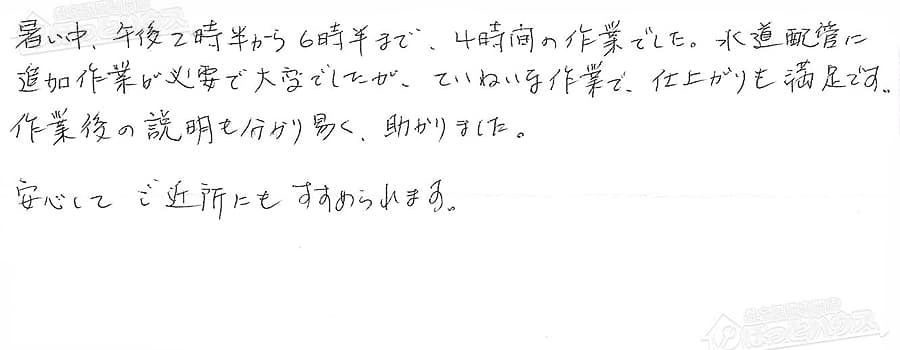 暑い中、午後2時半から6時半まで、4時間の作業でした。水道配管に
追加作業が必要で大変でしたが、ていねいな作業で、仕上がりも満足です。
作業後の説明も分かり易く、助かりました。
安心して ご近所にもすすめられます。